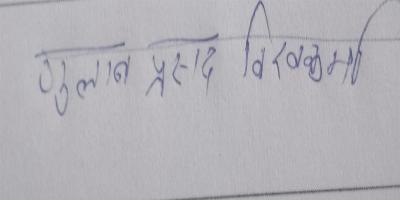 गुलाब प्रसाद विश्वकर्मा